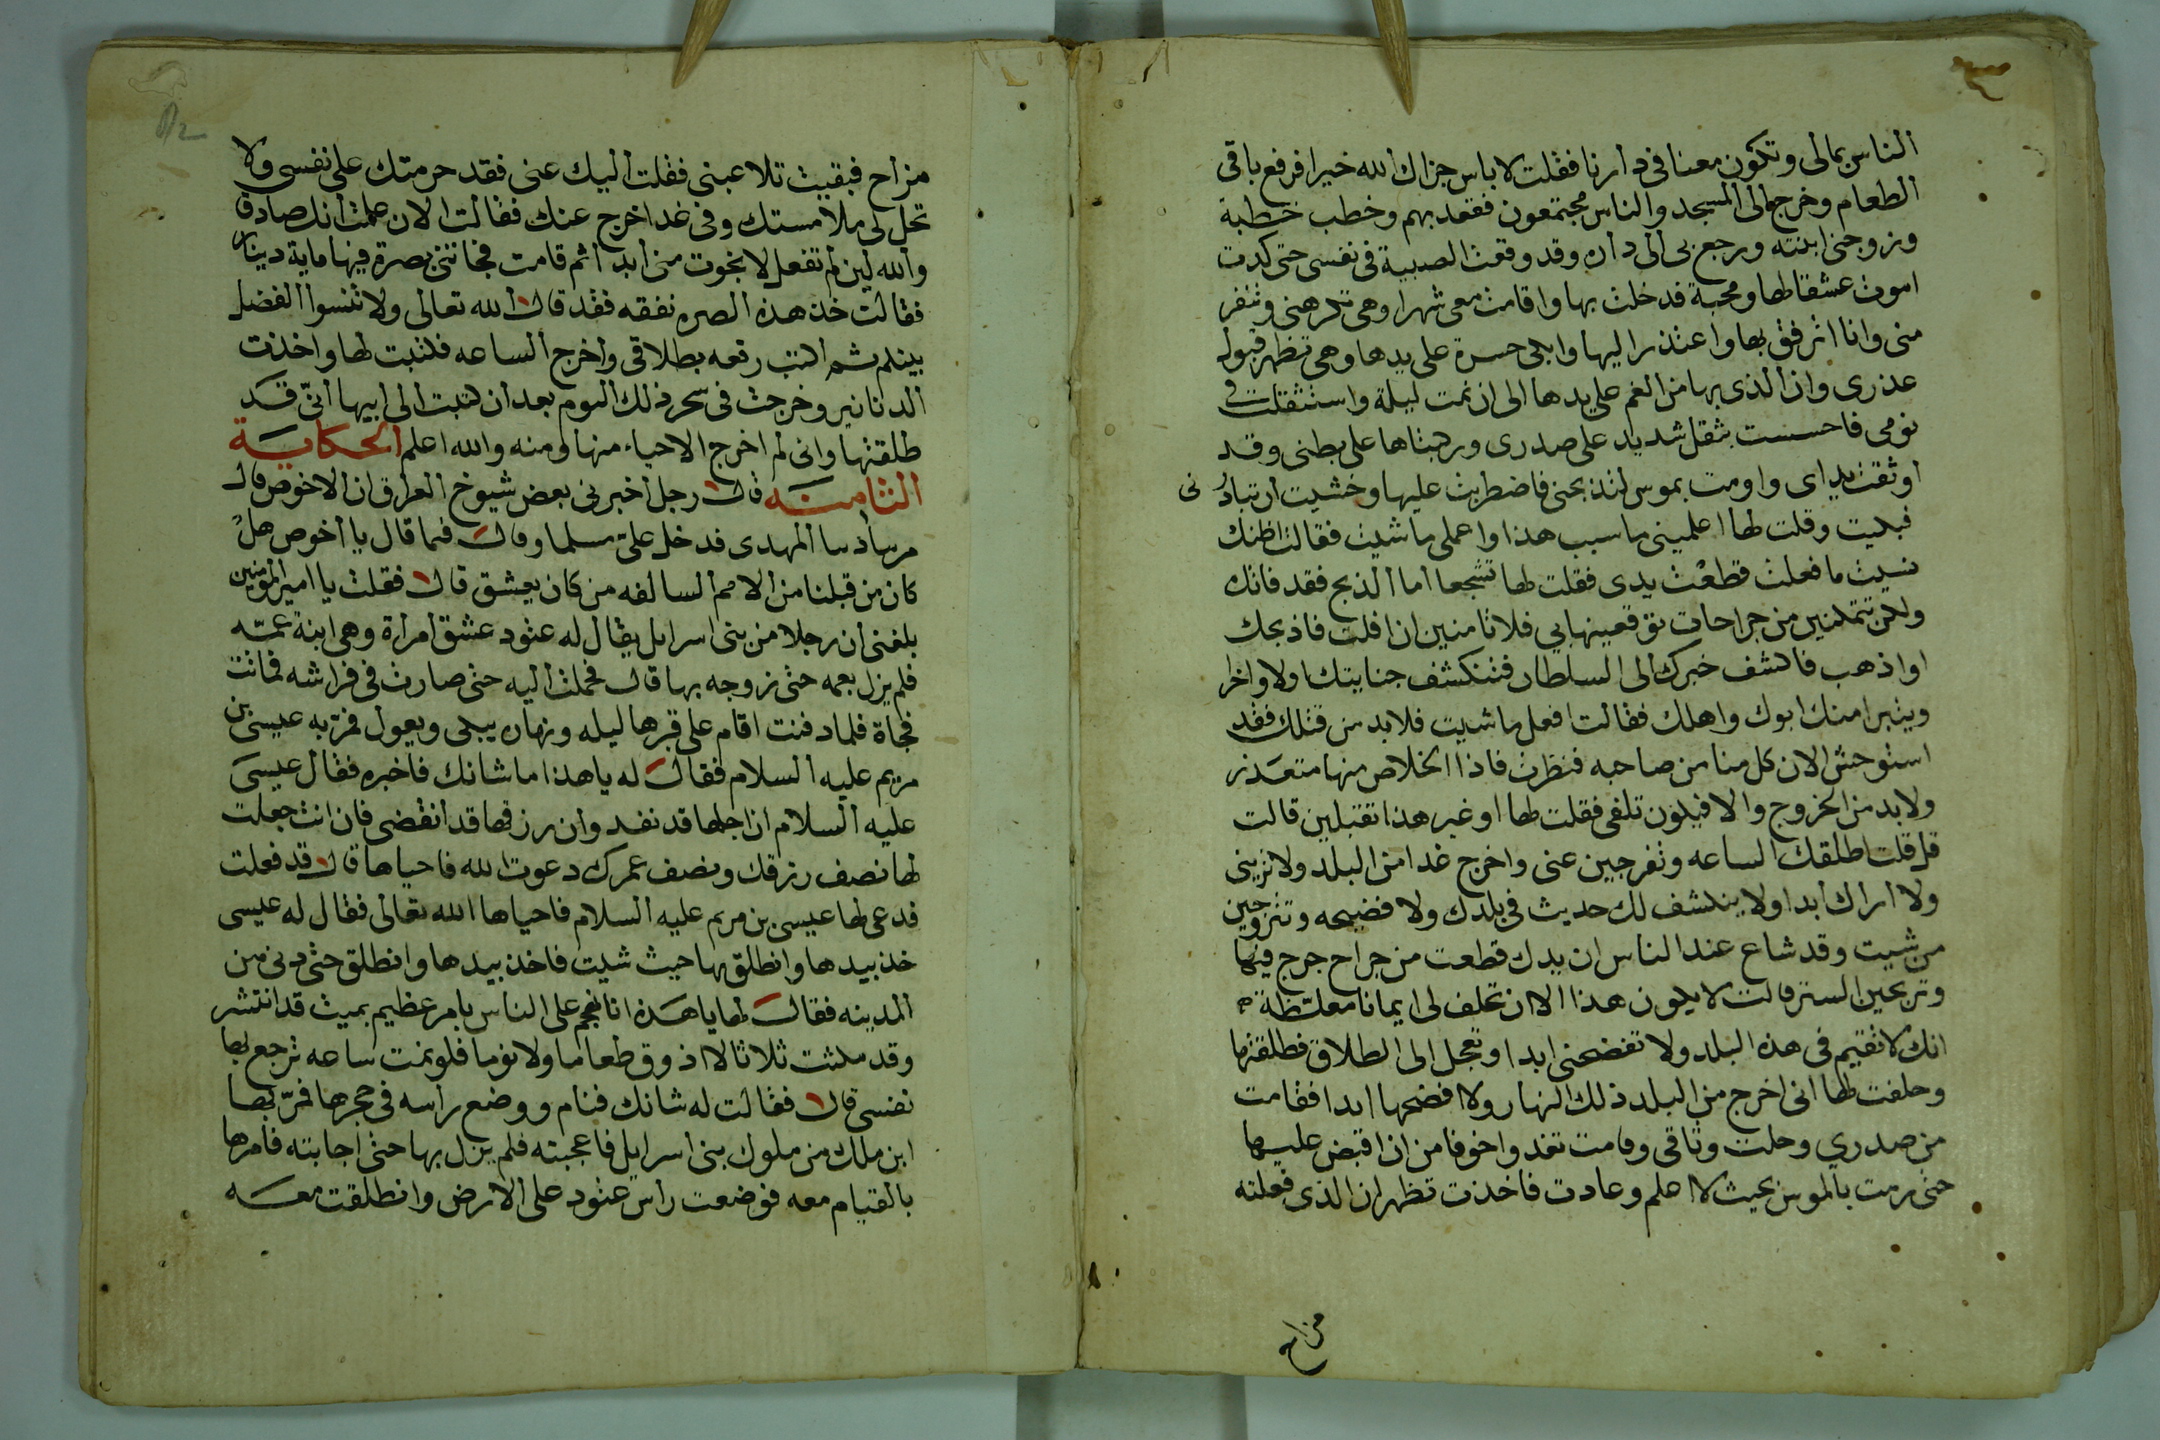 الناس بمالى وتكون معنا فى دارنا فقلت لا باس جزاك الله خيرا فرفع باقى
الطعام وخرج الى المسجد والناس مجتمعون فقعد بهم وخطب خطبة
وزوجنى ابنته ورجع بى الى داره وقد وقعت الصبية فى نفسى حتى كدت
اموت عشقا لها ومحبة فدخلت بها واقامت معى شهرا وهى تكرهنى وتنفر
منى وانا اترفق بها واعتذر اليها وابكى حسرة على يدها وهى تظهر قبول
عذرى وان الذى بها من الغم على يدها الى ان نمت ليلة واستثقلت فى
نومى فاحسست بثقل شديد على صدرى وركبتاها على بطنى وقد
اوثقت يداى واومت بموس لتذبحنى فاضطربت عليها وخشيت ان تبادر نى
فبكيت وقلت لها اعلمينى ما سبب هذا واعملى ما شيت فقالت اظنك
نسيت ما فعلت قطعت يدى فقلت لها تشجعا اما الذبح فقد فاتك
ولكن تتمكنين من جراحات توقعينها بى فلا تامنين ان افلت فاذبحك
او اذهب فاكشف خبرك الى السلطان فتنكشف جنايتك اولا واخرا
ويتبرا منك ابوك واهلك فقالت افعل ما شيت فلابد من قتلك فقد
استوحش الان كل منا من صاحبه فنظرت فاذا الخلاص منها متعذر
ولابد من الخروج والا فيكون تلفى فقلت لها او غير هذا تقتبلين قالت
قل قلت اطلقك الساعه وتفرجين عنى واخرج غدا من البلد ولا ترينى
ولا اراك ابدا ولا ينكشف لك حديث فى بلدك ولا فضيحه وتتزوجين
من شيت وقد شاع عند الناس ان يدك قطعت من جراح جرج فيها
وتربحين الستر قالت لا يكون هذا الا ان تحلف لى ايمانا مغلظة
انك لا تقيم فى هذه البلد ولا تفضحنى ابدا وتعجل الى الطلاق فطلقتها
وحلفت لها انى اخرج من البلد ذلك النهار ولا افضحها ابدا فقامت
من صدرى وحلت وثاقى وقامت تغدوا خوفا من ان اقبض عليها
حتى رمت بالموس بحيث لا اعلم وعادت فاخذت تظهر ان الذى فعلته
مزاح
مزاح فبقيت تلاعبنى فقلت اليك عنى فقد حرمتك على نفسى ولا
تحل لى ملامستك وفى غد اخرج عنك فقالت الان علمت انك صادق
والله لين لم تفعل لا نجوت منى ابدا ثم قامت فجاتنى بصرة فيها ماية دينار
فقالت خذ هذه الصره نفقه فقد قال الله تعالى ولا تنسوا الفضل
بينكم ثم اكتب رقعه بطلاقى واخرج الساعه فكتبت لها واخذت
الدنانير وخرجت فى سحر ذلك اليوم بعد ان كتبت الى ابيها انى قد
طلقتها وانى لم اخرج الا حياء منها ومنه والله اعلم الحكاية
الثامنة قال رجل اخبرنى بعض شيوخ العراق ان الاخوص قال
المهدى فدخل على مسلما وقال فيما قال يا اخوص هل
كان من قبلنا من الامم السالفه من كان يعشق قال فقلت يا امير المومنين
بلغنى ان رجلا من بنى اسرايل يقال له عنود عشق امراة وهى ابنة عمه
فلم يزل بعمه حتى زوجه بها قال فحملت اليه حتى صارت فى فراشه فماتت
فجاة فلما دفنت اقام على قبرها ليله ونهاره يبكى ويعول فمر به عيسى بن
مريم عليه السلام فقال له يا هذا ما شانك فاخبره فقال عيسى
عليه السلام ان اجلها قد نفد وان رزقها قد انقضى فان انت جعلت
لها نصف رزقك ونصف عمرك دعوت الله فاحياها قال قد فعلت
فدعى لها عيسى بن مريم عليه السلام فاحياها الله تعالى فقال له عيسى
خذ بيدها وانطلق بها حيث شيت فاخذ بيدها وانطلق حتى دنى من
المدينه فقال لها يا هذه انا نهجم على الناس بامر عظيم بميت قد انتشر
وقد مكثت ثلاثا لا اذوق طعاما ولا نوما فلو نمت ساعه ترجع بها
نفسى قال فقالت له شانك فنام ووضع راسه فى حجرها فمر بها
ابن ملك من ملوك بنى اسرايل فاعجبته فلم يزل بها حتى اجابته فامرها
بالقيام معه فوضعت راس عنود على الارض وانطلقت معه